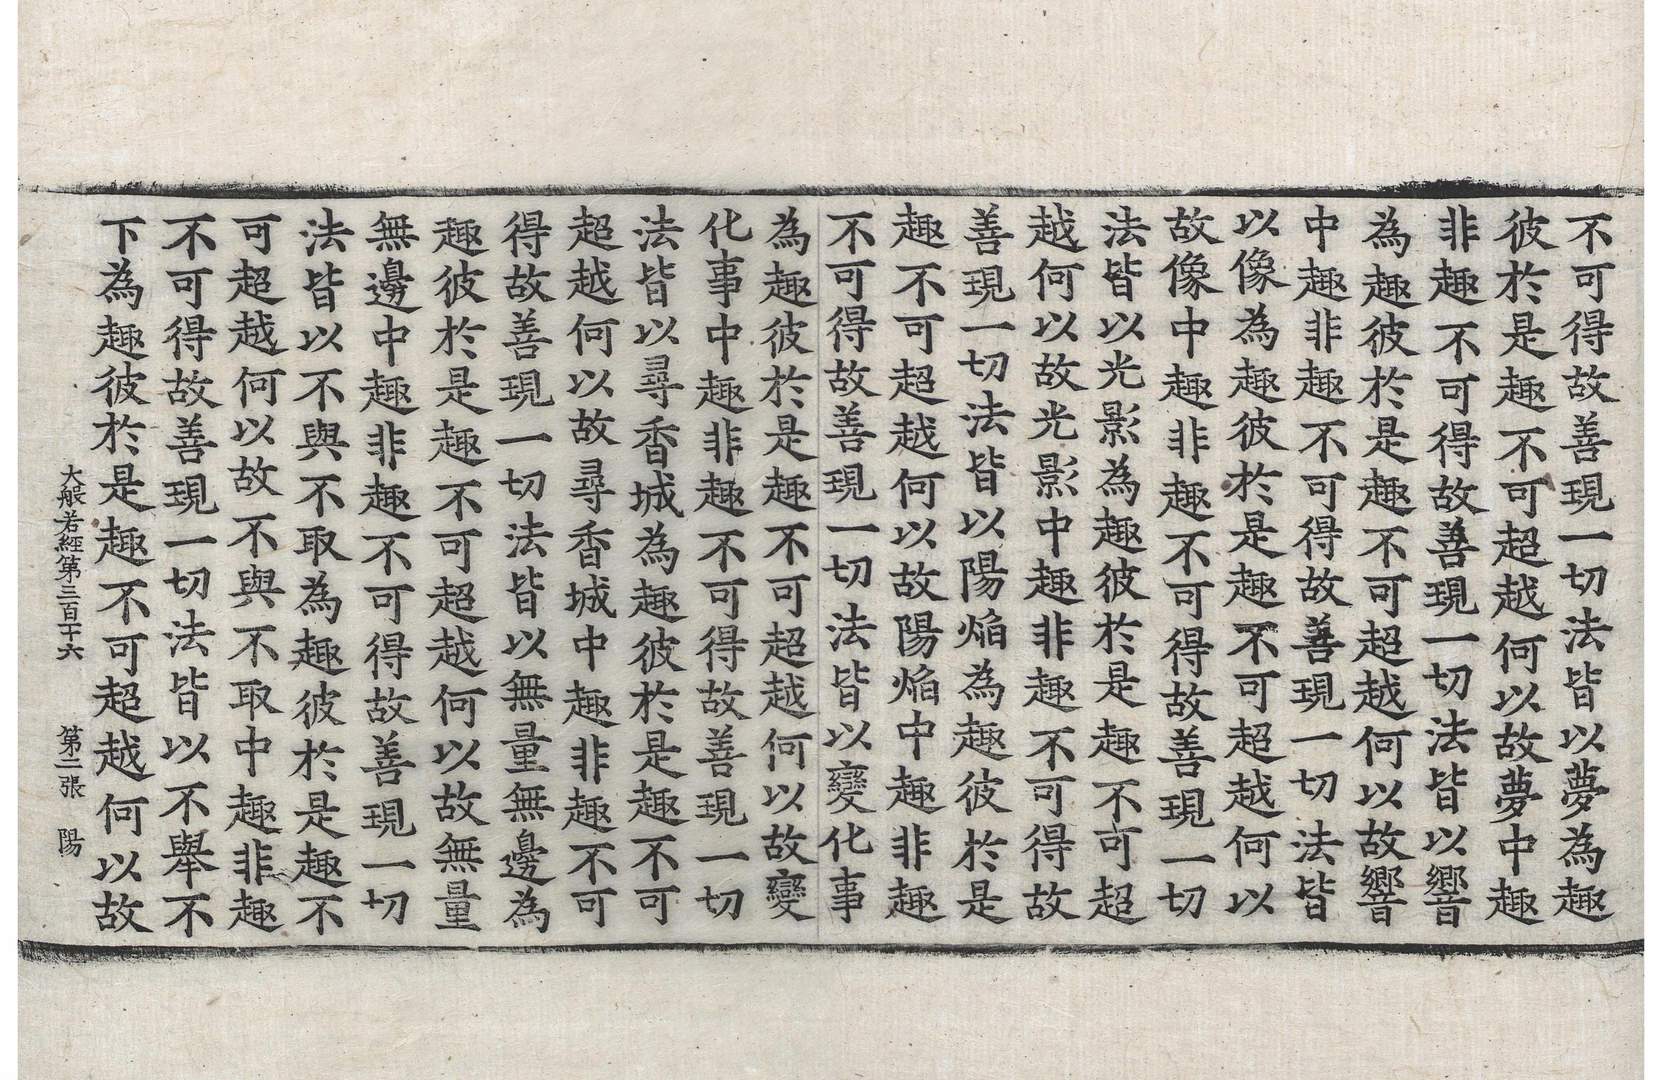 不可得故善現一切法皆以夢為趣
彼於是趣不可超越何以故夢中趣
非趣不可得故善現一切法皆以響
為趣彼於是趣不可超越何以故響
中趣非趣不可得故善現一切法皆
以像為趣彼於是趣不可超越何以
故像中趣非趣不可得故善現一切
法皆以光影為趣彼於是趣不可超
越何以故光影中趣非趣不可得故
善現一切法皆以陽焰為趣彼於是
趣不可超越何以故陽焰中趣非趣
不可得故善現一切法皆以變化事
為趣彼於是趣不可超越何以故變
化事中趣非趣不可得故善現一切
法皆以尋香城為趣彼於是趣不可
超越何以故尋香城中趣非趣不可
得故善現一切法皆以無量無邊為
趣彼於是趣不可超越何以故無量
無邊中趣非趣不可得故善現一切
法皆以不與不取為趣彼於是趣不
可超越何以故不與不取中趣非趣
不可得故善現一切法皆以不舉不
下為趣彼於是趣不可超越何以故
大般若經第三百十六 第二張 陽